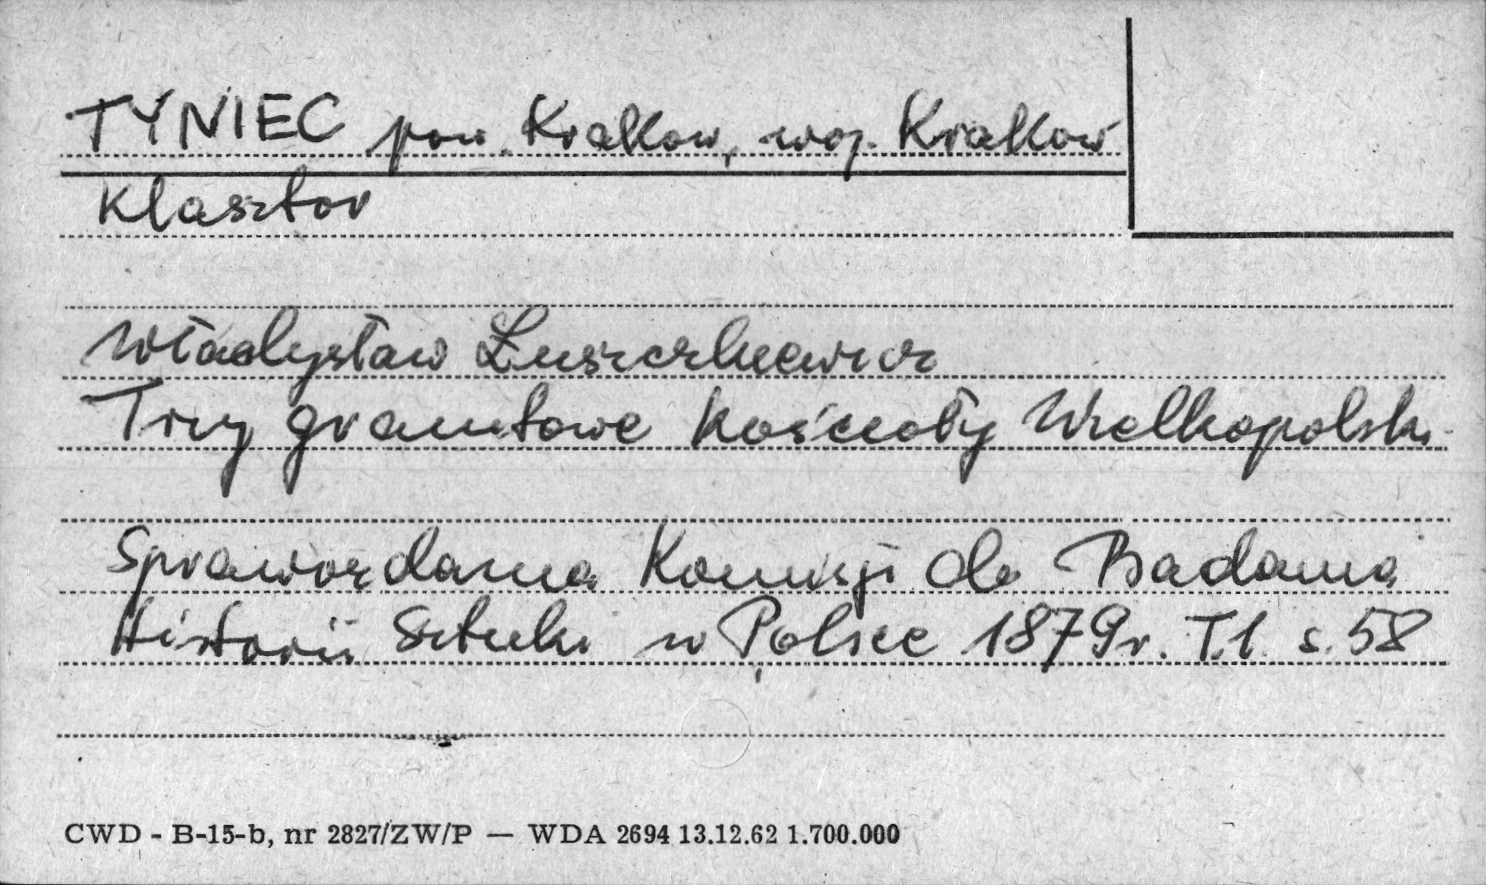 TYNIEC pow. Krakow, woj. Krakow
Klasztor
Władysław Łuszczkiewicz
Trzy granitowe kościoły Wielkopolski
Sprawozdania Komisji do Badania
Historii Sztuki w Polsce 1879r. T.1. s. 58
CWD - B-15-b, nr 2827/ZW/P — WDA 2694 13.12.62 1.700.000